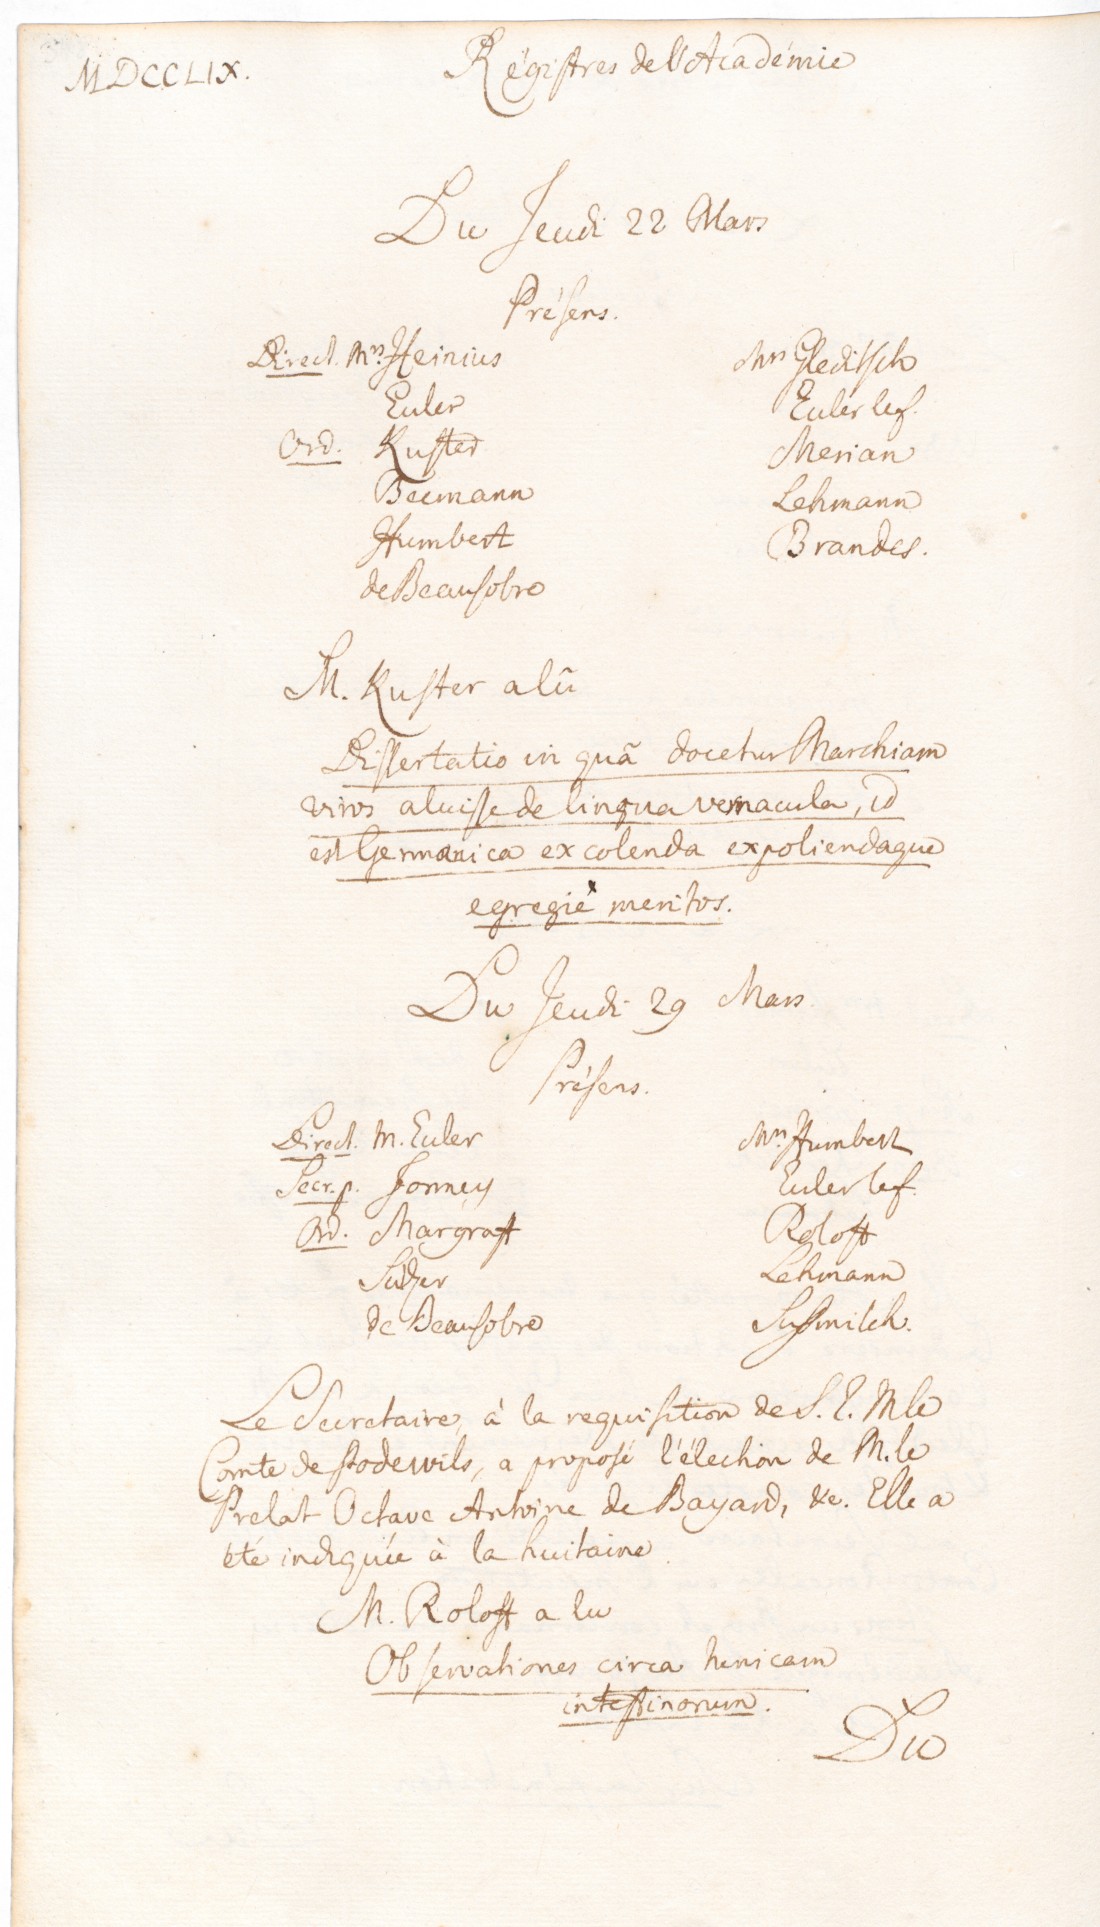 MDCCLIX.
Régistres de l'Académie
Du Jeudi 22 Mars
Présens.
Direct. Mrs. Heinius
Euler
Ord. Kuster
Becmann
Humbert
de Beausobre
Mrs Gleditsch
Euler le f.
Merian
Lehmann
Brandes.
M. Kuster a lû
Dissertatio in quâ docetur Marchiam
viros aluisse de lingua vernacula, id
est Germanica excolenda expoliendaque
egregiè meritos.
Du Jeudi 29 Mars
Présens.
Direct. M. Euler
Secr. p. Formey
Ord. Margraff
Sulzer
de Beausobre
Mrs. Humbert
Euler le f.
Roloff
Lehmann
Susmilch.
Le Secretaire, à la requisition de S. E. M le
Comte de Podewils, a proposé l'élection de M. le
Prelat Octave Antoine de Bayard, &c. Elle a
été indiquée à la huitaine
M. Roloff a lu
Observationes circa tunicam
intestinorum.
Du